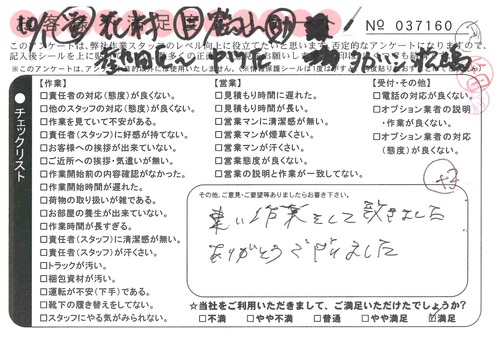 No 037160
このアンケートは、弊社作業スタッフのレベル向上に役立てたいと思います。否定的なアンケートになりますので、
チェックリスト
【作業】
□責任者の対応(態度)が良くない。
□他のスタッフの対応(態度)が良くない。
□作業を見ていて不安がある。
□責任者(スタッフ)に好感が持てない。
□お客様への挨拶が出来ていない。
□ご近所への挨拶・気遣いが無い。
□作業開始前の内容確認がなかった。
□作業開始時間が遅れた。
□荷物の取り扱いが雑である。
□お部屋の養生が出来ていない。
□作業時間が長すぎる。
□責任者(スタッフ)に清潔感が無い。
□責任者(スタッフ)が汗くさい。
□トラックが汚い。
□梱包資材が汚い。
□運転が不安(下手)である。
□靴下の履き替えをしてない。
□スタッフにやる気がみられない。
【営業】
□見積もり時間に遅れた。
□見積もり時間が長い。
□営業マンに清潔感が無い。
□営業マンが煙草くさい。
□営業マンが汗くさい。
□営業態度が良くない。
□営業の説明と作業が一致してない。
【受付・その他】
□電話の対応が良くない。
□オプション業者の説明
・作業が良くない。
□オプション業者の対応
(態度)が良くない。
その他、ご意見・ご要望等ありましたらお書き下さい。
作業をして頂きました
ありがとうございました
☆当社をご利用いただきまして、ご満足いただけたでしょうか?
□不満 □やや不満 □普通 □やや満足 ☑満足